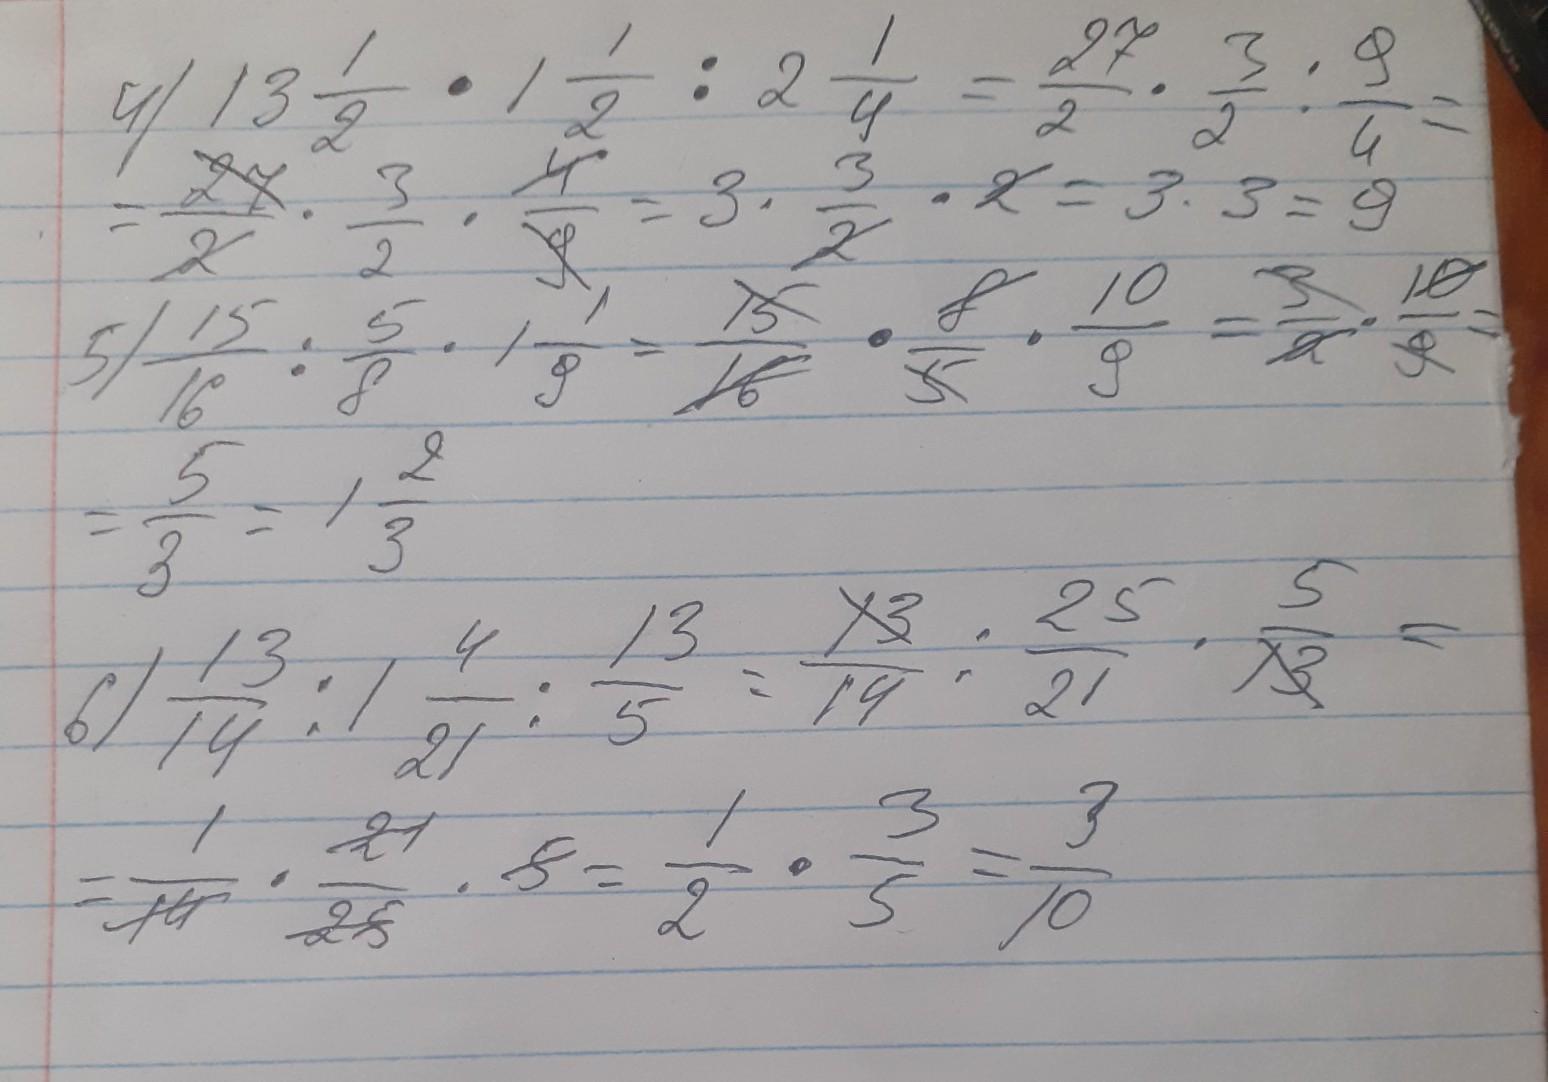 4) 13 1/2 · 1 1/2 : 2 1/4 = 27/2 · 3/2 : 9/4 =
= 27/2 · 3/2 · 4/9 = 3 · 3/2 · 2 = 3 · 3 = 9
5) 15/16 : 5/8 · 1 1/9 = 15/16 · 8/5 · 10/9 = 3/2 · 10/9 =
= 5/3 = 1 2/3
6) 13/14 : 1 4/21 : 13/5 = 13/14 : 25/21 · 5/13 =
= 1/14 · 21/25 · 5 = 1/2 · 3/5 = 3/10